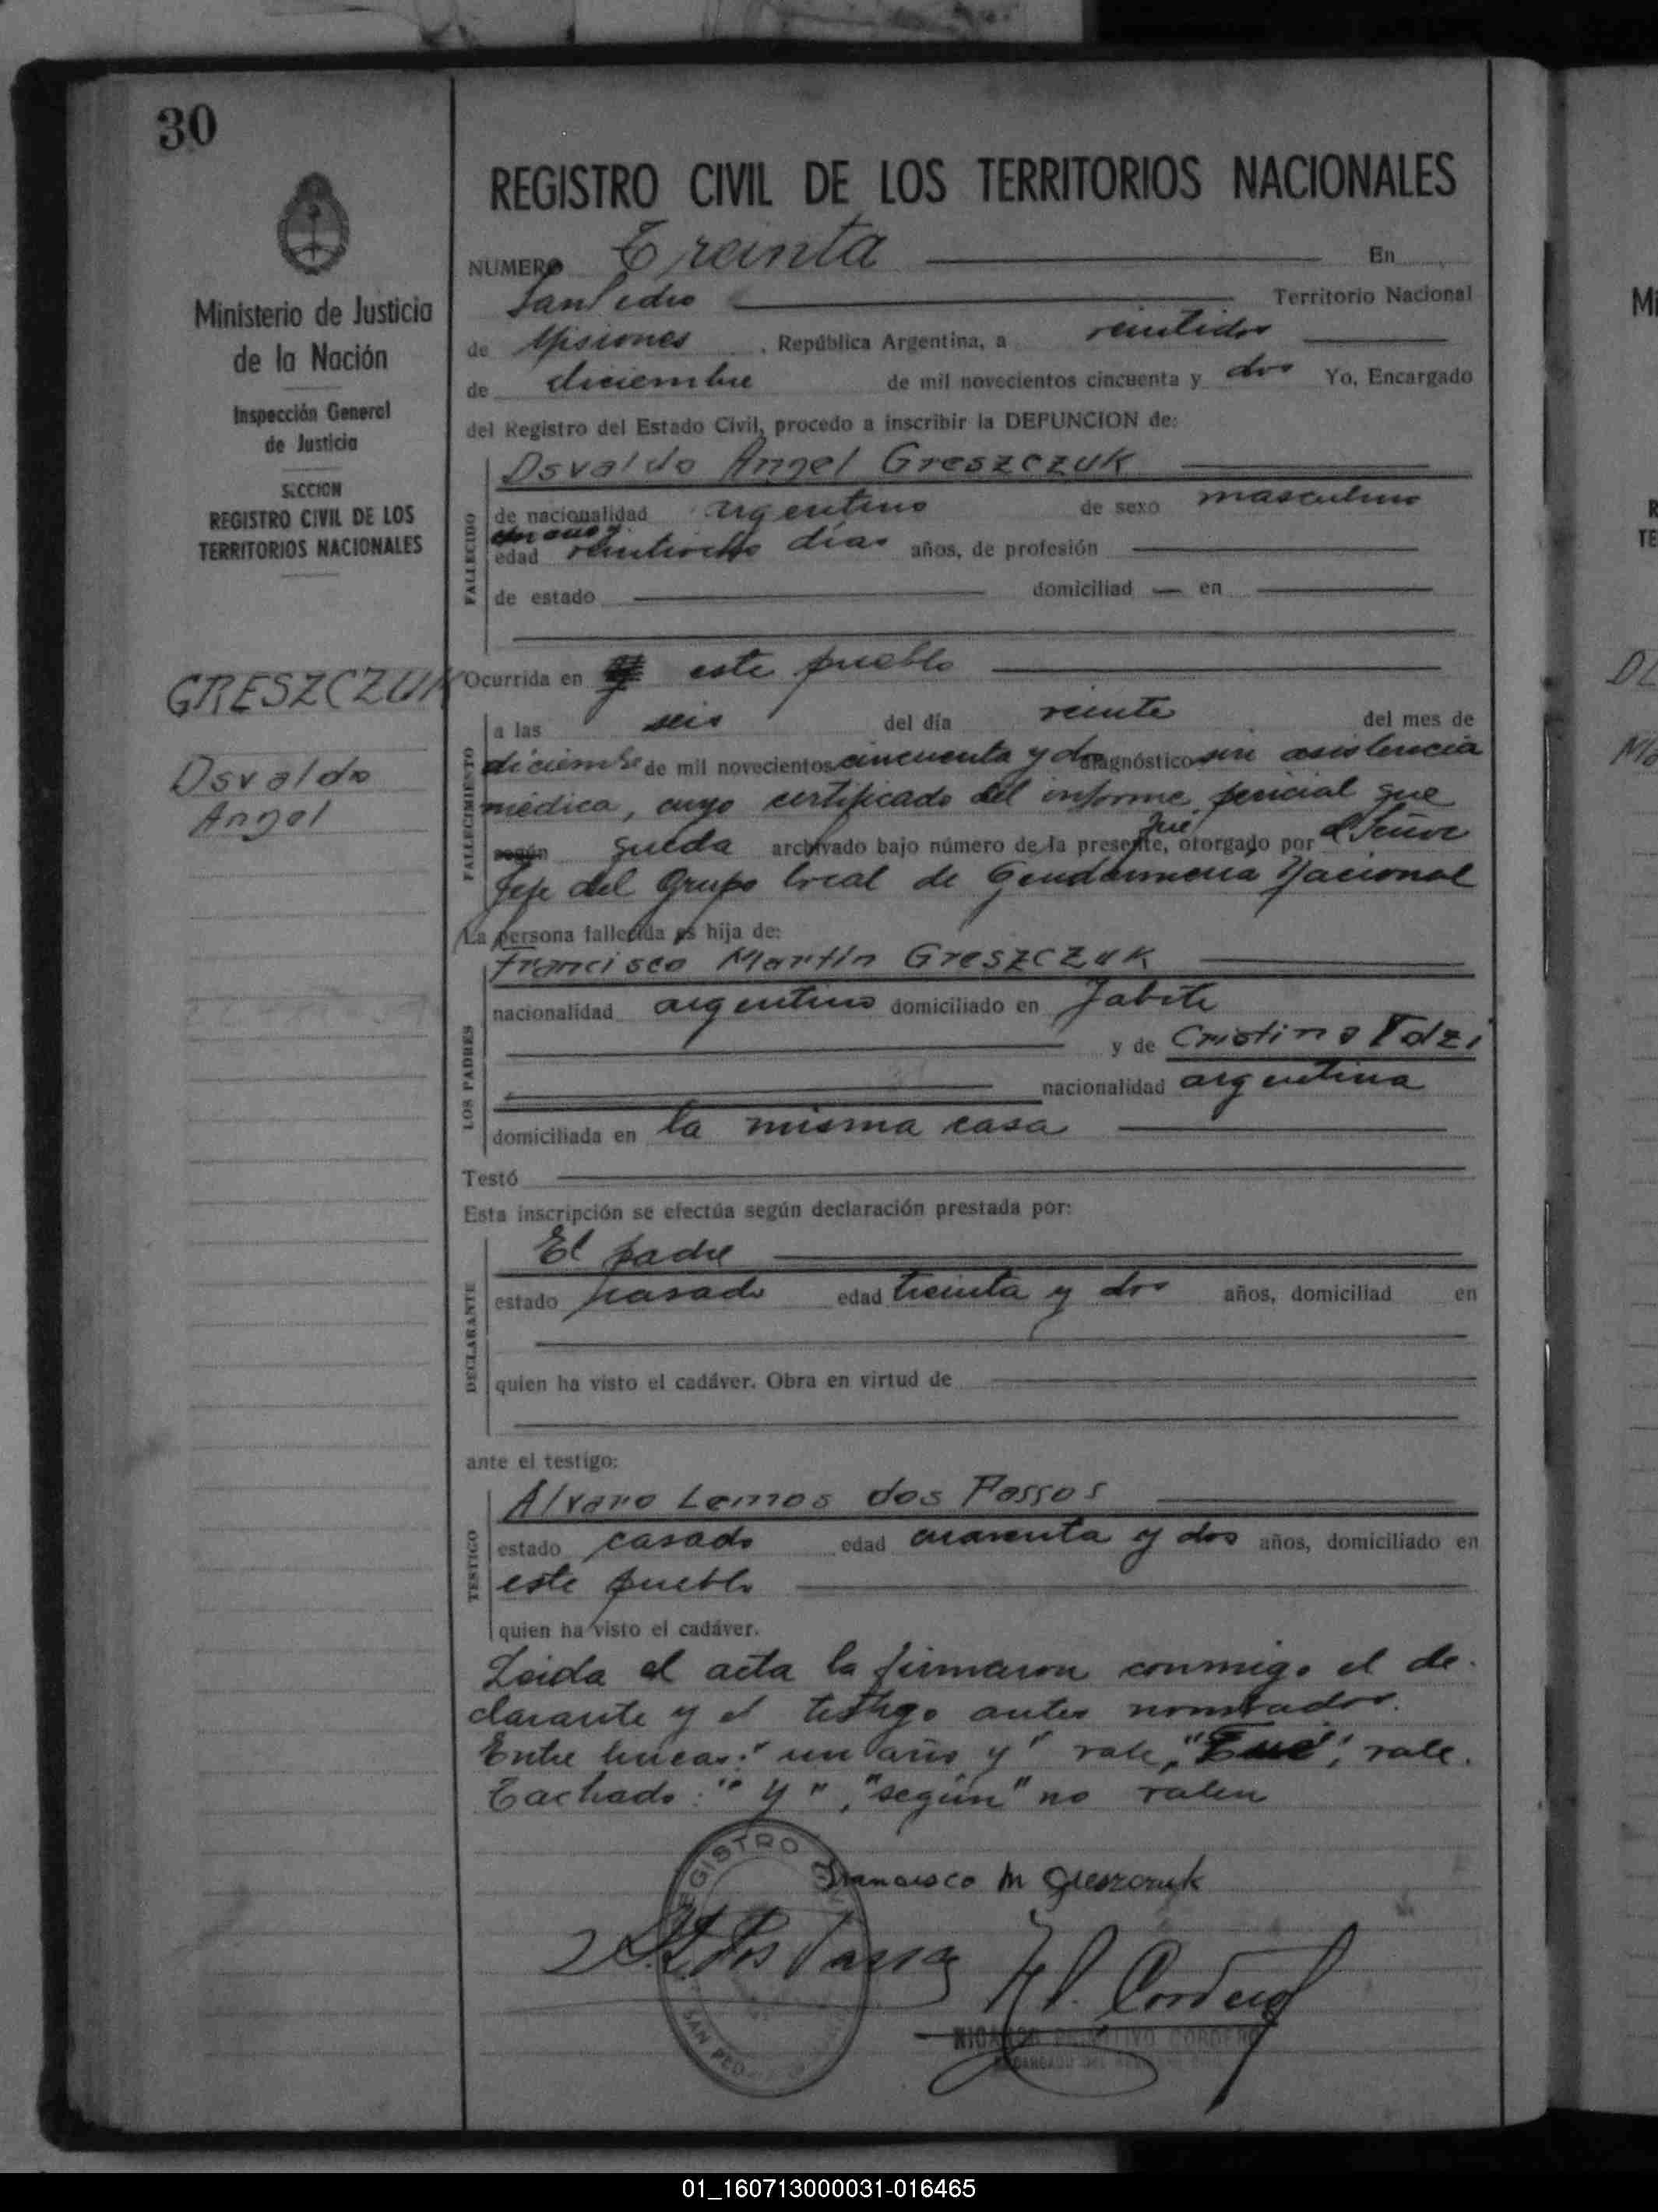 30
Ministerio de Justicia
de la Nación
Inspección General
de Justicia
SECCION
REGISTRO CIVIL DE LOS
TERRITORIOS NACIONALES
GRESZCZUK
Osvaldo
Angel
REGISTRO CIVIL DE LOS TERRITORIOS NACIONALES
NUMERO Treinta En
San Pedro Territorio Nacional
de Misiones, República Argentina, a veintidos
de diciembre de mil novecientos cincuenta y dos Yo, Encargado
del Registro del Estado Civil, procedo a inscribir la DEFUNCION de:
FALLECIDO
Osvaldo Angel Greszczuk
de nacionalidad argentino de sexo masculino
un año y
edad veintiocho días años, de profesión
de estado domiciliad en
Ocurrida en este pueblo
FALLECIMIENTO
a las seis del día veinte del mes de
diciembre de mil novecientos cincuenta y dos diagnóstico sin asistencia
médica, cuyo certificado del informe pericial que
según queda archivado bajo número de la presente, fué otorgado por el Señor
Jefe del Grupo local de Gendarmería Nacional
La persona fallecida es hija de:
LOS PADRES
Francisco Martín Greszczuk
nacionalidad argentino domiciliado en
y de Cristina
nacionalidad argentina
domiciliada en la misma casa
Testó
Esta inscripción se efectúa según declaración prestada por:
DECLARANTE
El padre
estado casado edad treinta y dos años, domiciliad en
quien ha visto el cadáver. Obra en virtud de
ante el testigo:
TESTIGO
Alvaro Lemos dos Passos
estado casado edad cuarenta y dos años, domiciliado en
este pueblo
quien ha visto el cadáver.
Leida el acta la firmaron conmigo el de-
clarante y el testigo antes nombrados.
Entre lineas: "un año y" vale, "Fué", vale.
Tachado: "y", "según" no valen
REGISTRO CIVIL
SAN PEDRO
Francisco M Greszczuk
dos Passos
N. P. Cordero
NICANOR PRIMITIVO CORDERO
ENCARGADO DEL REGISTRO CIVIL
01_160713000031-016465